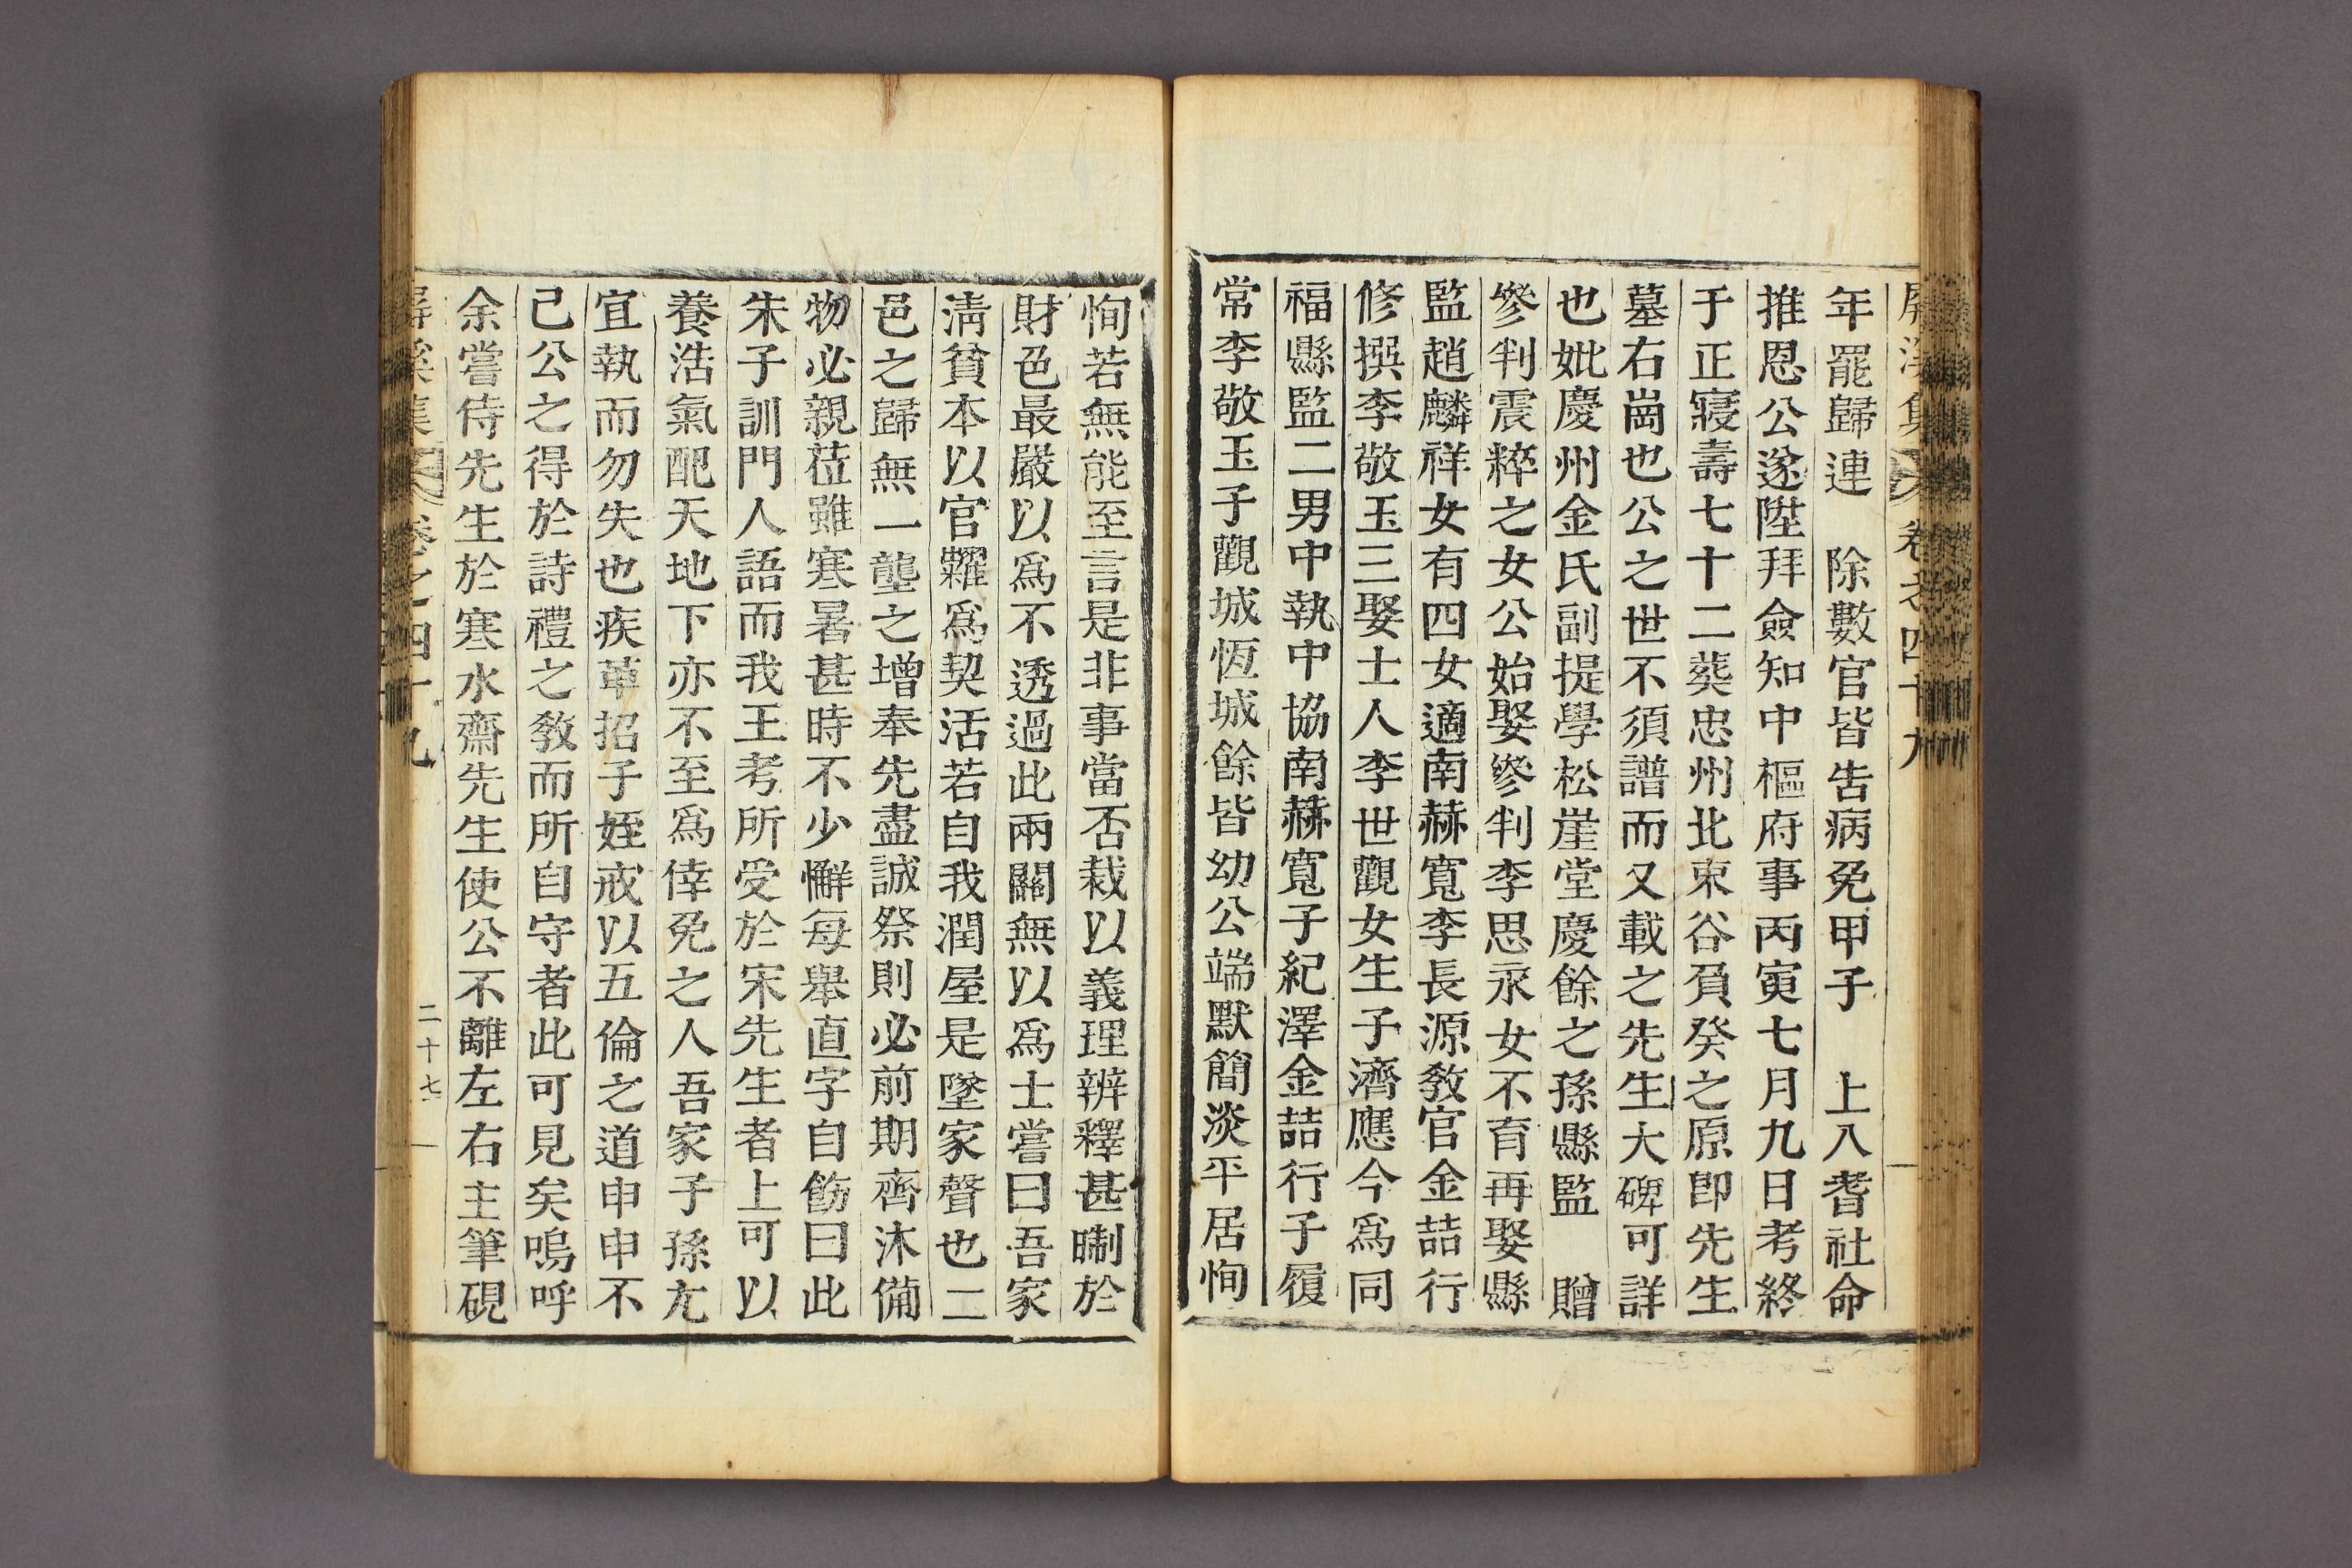 屛溪集 卷之四十九
年罷歸連 除數官皆告病免甲子 上入耆社命
推恩公遂陞拜僉知中樞府事丙寅七月九日考終
于正寢壽七十二葬忠州北束谷負癸之原卽先生
墓右崗也公之世不須譜而又載之先生大碑可詳
也妣慶州金氏副提學松崖堂慶餘之孫縣監 贈
參判震粹之女公始娶參判李思永女不育再娶縣
監趙麟祥女有四女適南赫寬李長源敎官金喆行
修撰李敬玉三娶士人李世觀女生子濟應今爲同
福縣監二男中執中協南赫寬子紀澤金喆行子履
常李敬玉子觀城恆城餘皆幼公端默簡淡平居恂
恂若無能至言是非事當否裁以義理辨釋甚晣於
財色最嚴以爲不透過此兩關無以爲士嘗曰吾家
淸貧本以官糶爲契活若自我潤屋是墜家聲也二
邑之歸無一壟之增奉先盡誠祭則必前期齊沐備
物必親莅雖寒暑甚時不少懈每擧直字自飭曰此
朱子訓門人語而我王考所受於宋先生者上可以
養浩氣配天地下亦不至爲倖免之人吾家子孫尤
宜執而勿失也疾革招子姪戒以五倫之道申申不
已公之得於詩禮之敎而所自守者此可見矣嗚呼
余嘗侍先生於寒水齋先生使公不離左右主筆硯
屛溪集 卷之四十九 二十七